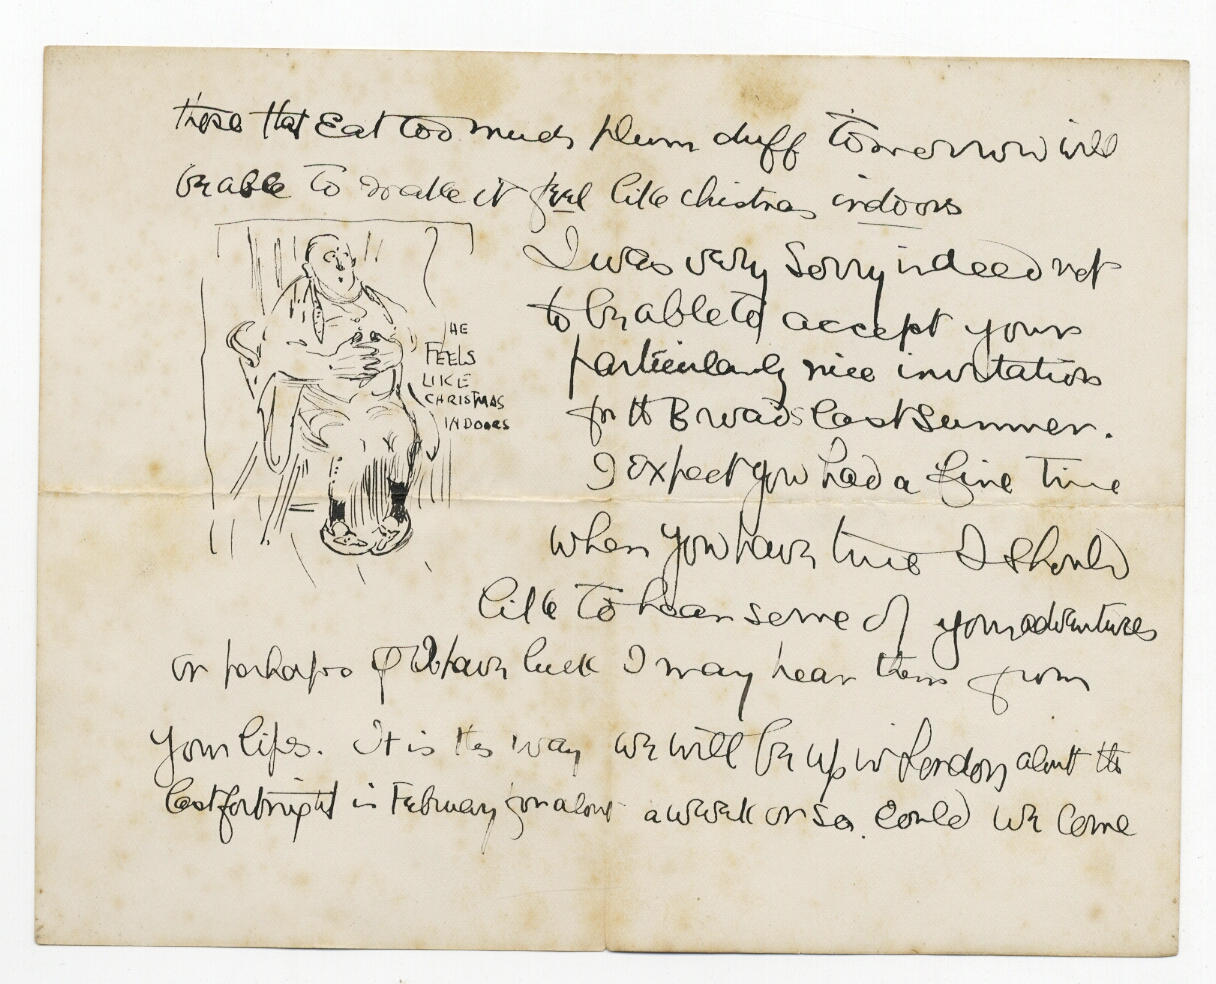 those that Eat too much plum duff tomorrow will
be able to make it feel like chistmas indoors
HE
FEELS
LIKE
CHRISTMAS
INDOORS
I was very Sorry indeed not
to be able to accept your
particularly nice invitation
for the Broads last Summer.
I expect you had a fine time
when you have time I should
like to hear some of your adventures
or perhaps if I have luck I may hear them from
your lips. It is this way we will be up in London about the
last fortnight in February for about a week or so. Could we come